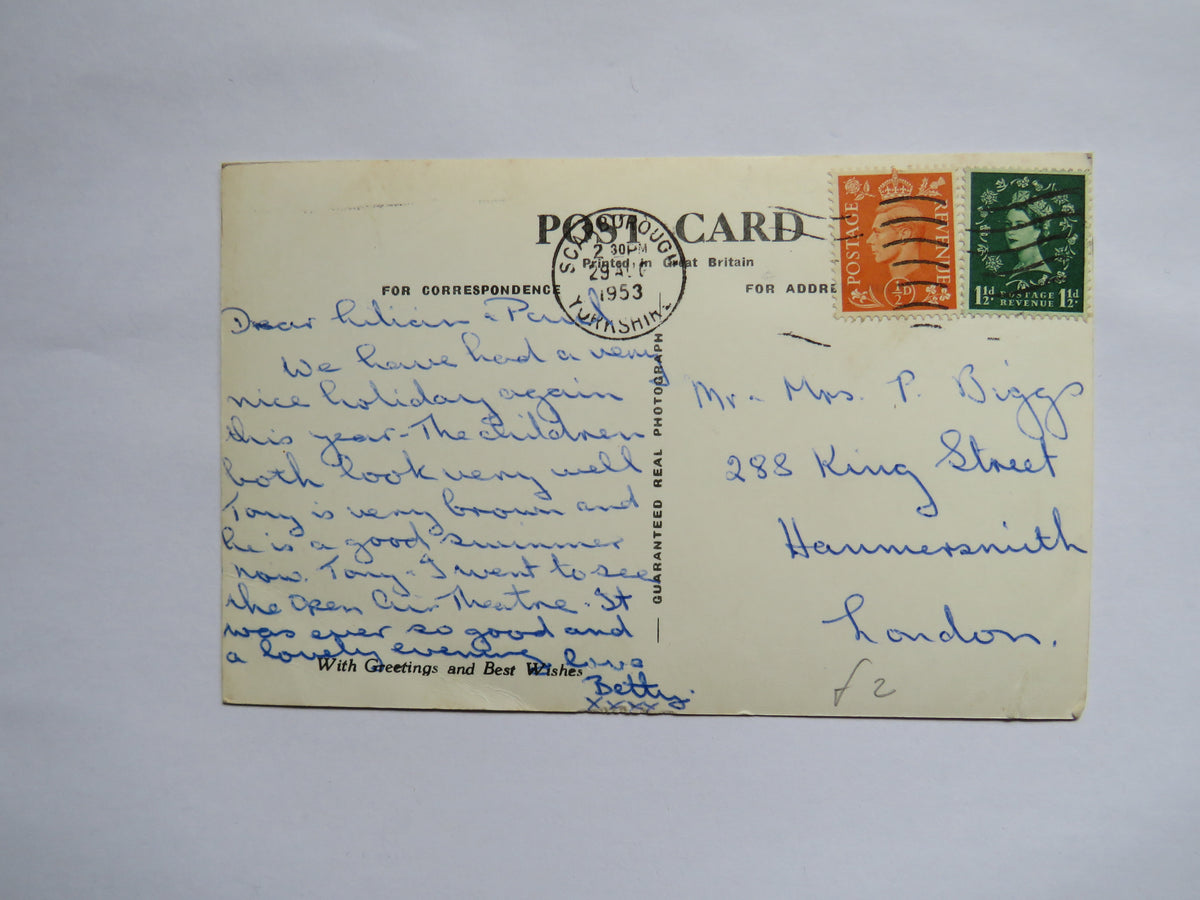 POST CARD
Printed in Great Britain
SCARBOROUGH
2 30PM
29 AUG
1953
YORKSHIRE
POSTAGE REVENUE
½D
1½d. POSTAGE REVENUE 1½d.
FOR CORRESPONDENCE
FOR ADDRE
Dear Lilian & Paul
We have had a very
nice holiday again
this year - The children
both look very well
Tony is very brown and
he is a good swimmer
now. Tony & I went to see
the Open Air Theatre. It
was ever so good and
a lovely evening love
Betty.
xxxx
With Greetings and Best Wishes
GUARANTEED REAL PHOTOGRAPH
Mr & Mrs. P. Biggs
288 King Street
Hammersmith
London.
£2